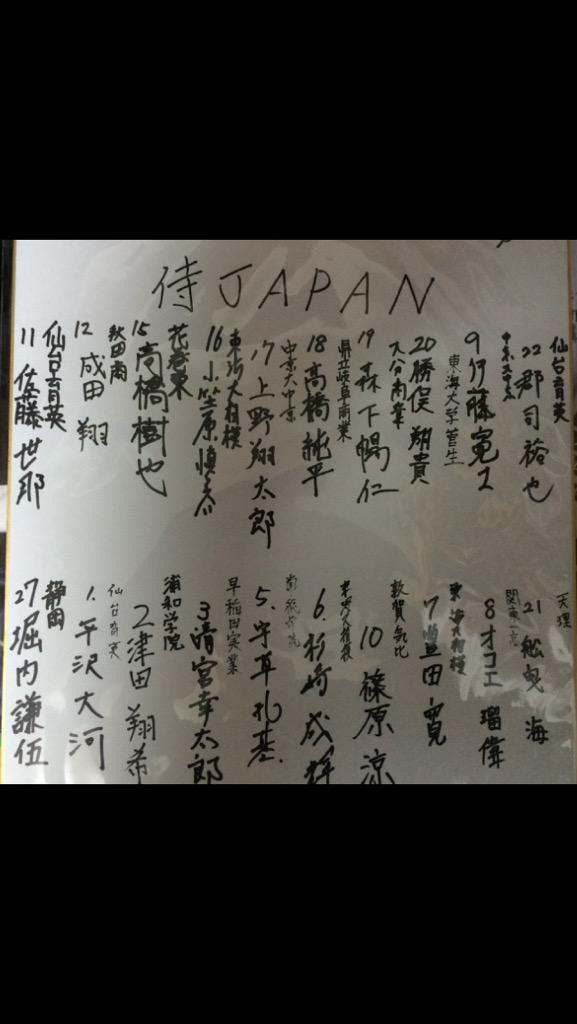 侍JAPAN
仙台育英
22 郡司裕也
中京大中京
9 伊藤寛士
東海大学菅生
20 勝俣翔貴
大分商業
19 森下暢仁
県立岐阜商業
18 高橋純平
中京大中京
17 上野翔太郎
東海大相模
16 小笠原慎之介
花巻東
15 高橋樹也
秋田商
12 成田翔
仙台育英
11 佐藤世那
天理
21 舩曳海
関東一高
8 オコエ瑠偉
東海大相模
7 豊田寛
敦賀気比
10 篠原涼
6. 杉崎成輝
常総学院
5. 宇草孔基.
早稲田実業
3 清宮幸太郎
浦和学院
2 津田翔希
仙台育英
1. 平沢大河
静岡
27 堀内謙伍